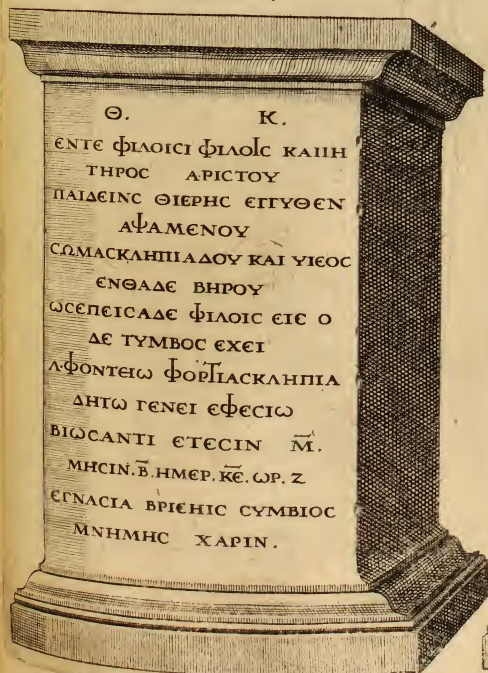 Θ. Κ.
ΕΝΤΕ ΦΙΛΟΙϹΙ ΦΙΛΟΙϹ ΚΑΙΙΗ
ΤΗΡΟϹ Α·ΡΙϹΤΟΥ
ΠΑΙΔΕΙΝϹ ΘΙΕΡΗϹ ΕΓΓΥΘΕΝ
ΑΨΑΜΕΝΟΥ
ϹΩΜΑϹΚΛΗΠΙΑΔΟΥ ΚΑΙ ΥΙΕΟϹ
ΕΝΘΑΔΕ ΒΗΡΟΥ
ΩϹΕΠΕΙϹΑΔΕ ΦΙΛΟΙϹ ΕΙΕ Ο
ΔΕ ΤΥΜΒΟϹ ΕΧΕΙ
Λ·ΦΟΝΤΕΙΩ ΦΟΡΤΙΑϹΚΛΗΠΙΑ
ΔΗΤΩ ΓΕΝΕΙ ΕΦΕϹΙΩ
ΒΙΩϹΑΝΤΙ ΕΤΕϹΙΝ Μ̅.
ΜΗϹΙΝ.Β̅.ΗΜΕΡ.Κ̅Ε̅.ΩΡ.Ζ
ΕΓΝΑϹΙΑ ΒΡΙΕΗΙϹ ϹΥΜΒΙΟϹ
ΜΝΗΜΗϹ ΧΑΡΙΝ.